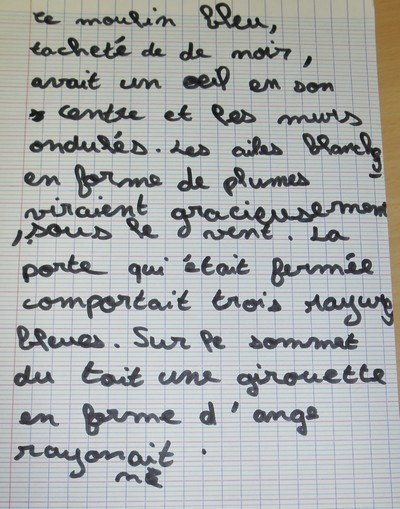 ce moulin bleu,
tacheté de de noir,
avait un oeil en son
centre et les murs
ondulés. Les ailes blanches
en forme de plumes
viraient gracieusement
, sous le vent. La
porte qui était fermée
comportait trois rayures
bleues. Sur le sommet
du toit une girouette
en forme d'ange
rayonait.
ne